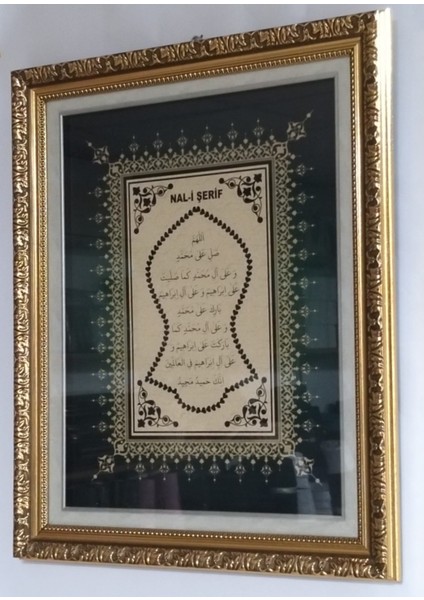 NAL-İ ŞERİF
اللهم
صل على محمد
و على آل محمد كما صليت
على ابراهيم و على آل ابراهيم
بارك على محمد
و على آل محمد كما
باركت على ابراهيم و
على آل ابراهيم في العالمين
انك حميد مجيد